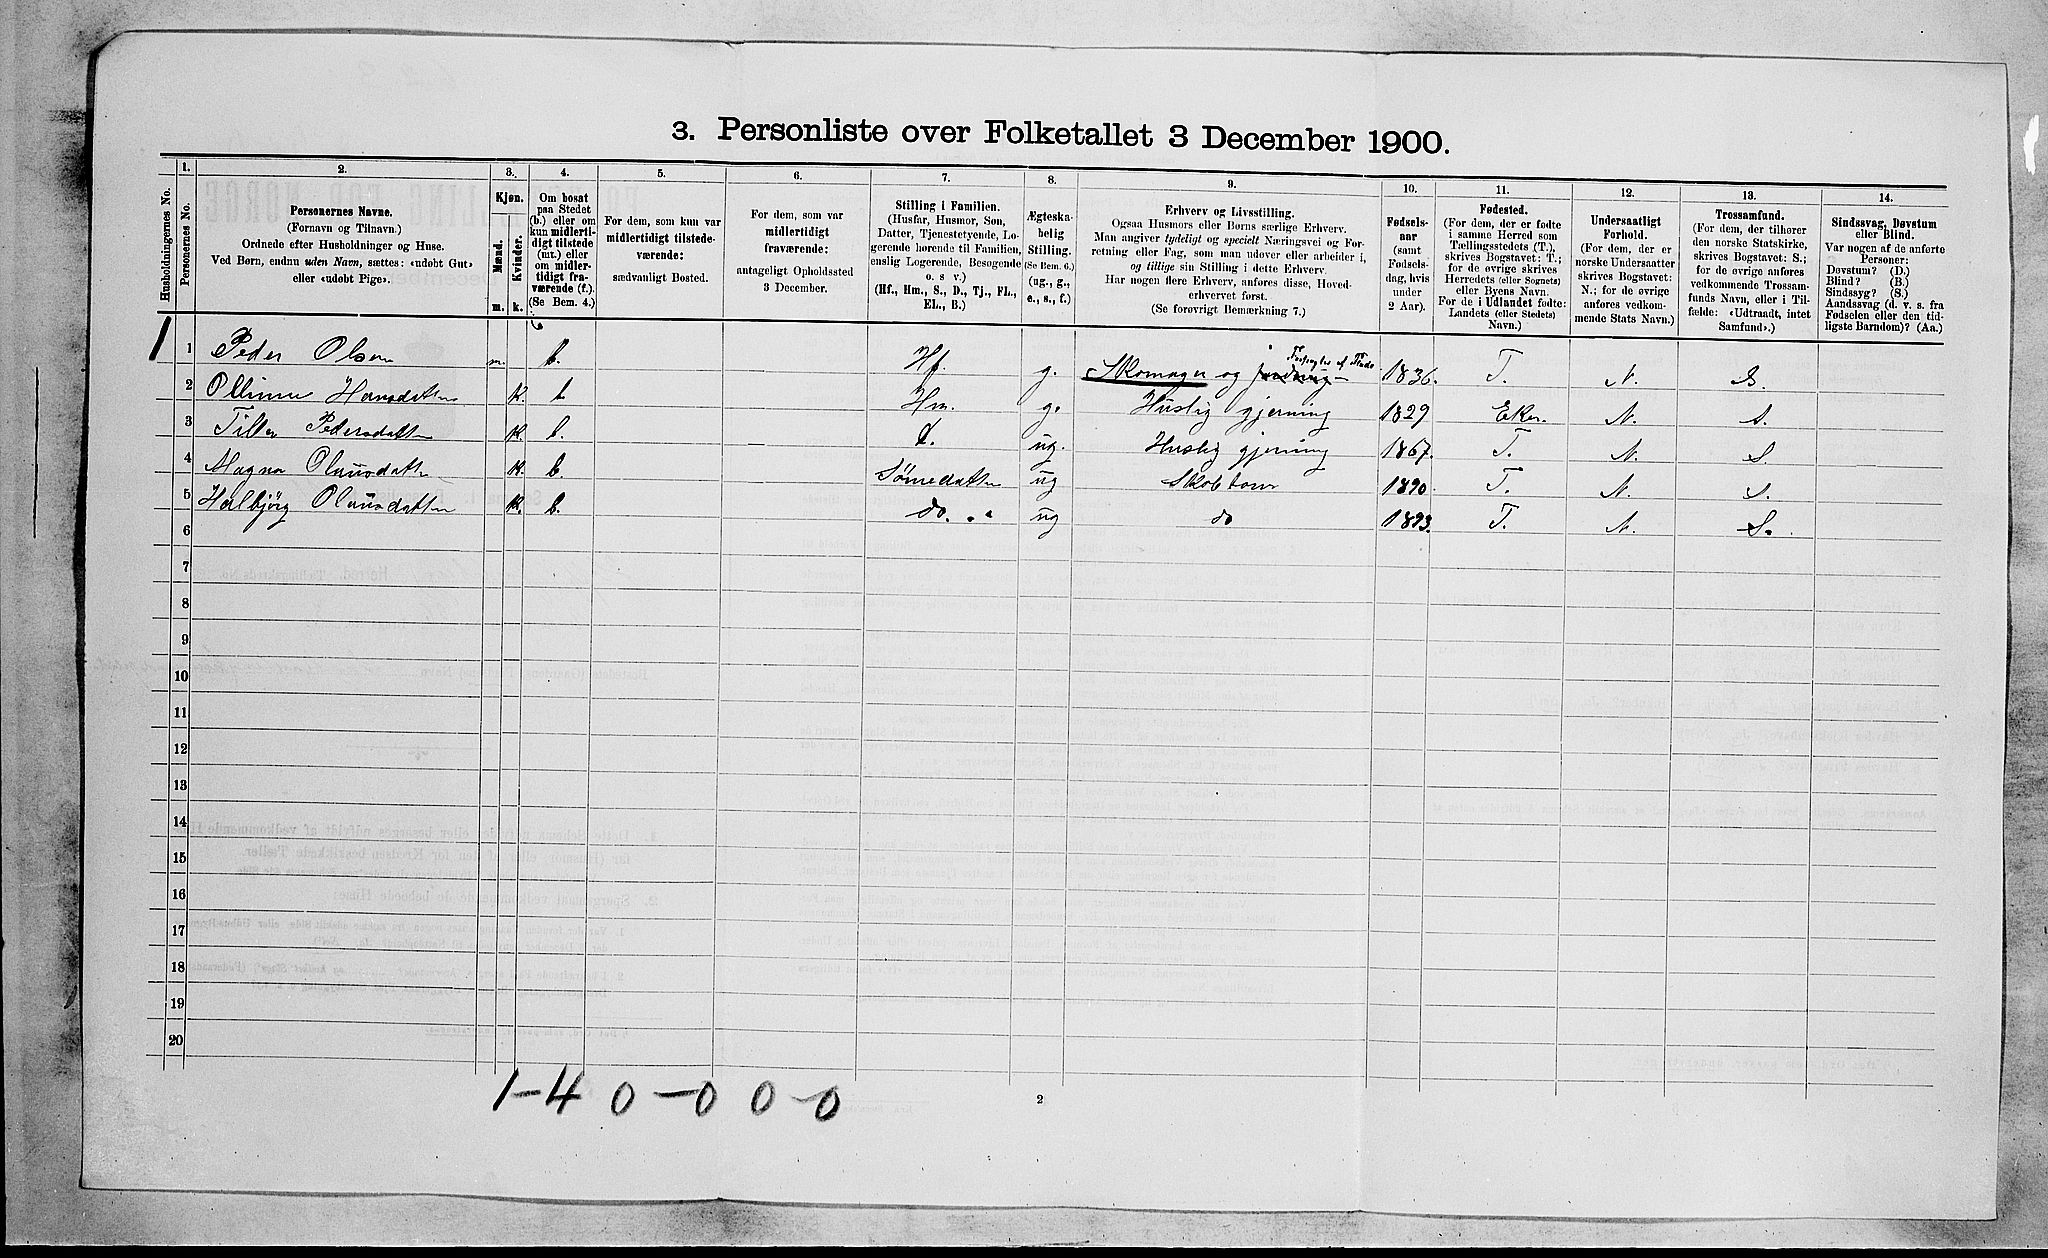 3. Personliste over Folketallet 3 December 1900.
Husholdningernes No.
1.
Personernes No.
2.
Personernes Navne.
(Fornavn og Tilnavn.)
Ordnede efter Husholdninger og Huse.
Ved Børn, endnu uden Navn, sættes: «udøbt Gut»
eller «udøbt Pige».
3.
Kjøn.
Mænd.
Kvinder.
m.
k.
4.
Om bosat
paa Stedet
(b.) eller om
kun midlerti-
digt tilstede
(mt.) eller
om midler-
tidigt fra-
værende (f.).
(Se Bem. 4.)
5.
For dem, som kun var
midlertidigt tilstede-
værende:
sædvanligt Bosted.
6.
For dem, som var
midlertidigt
fraværende:
antageligt Opholdssted
3 December.
7.
Stilling i Familien.
(Husfar, Husmor, Søn,
Datter, Tjenestetyende, Lo-
gerende hørende til Familien,
enslig Logerende, Besøgende
o. s v.)
(Hf., Hm., S., D., Tj., Fl.,
El., B.)
8.
Ægteska-
belig
Stilling.
(Se Bem. 6.)
(ug., g.,
e., s., f.)
9.
Erhverv og Livsstilling.
Ogsaa Husmors eller Børns særlige Erhverv.
Man angiver tydeligt og specielt Næringsvei og For-
retning eller Fag, som man udover eller arbeider i,
og tillige sin Stilling i dette Erhverv.
Har nogen flere Erhverv, anføres disse, Hoved-
erhvervet først.
(Se forøvrigt Bemærkning 7.)
10.
Fødsels-
aar
(samt
Fødsels-
dag, hvis
under
2 Aar).
11.
Fødested.
(For dem, der er fødte
i samme Herred som
Tællingsstedets (T.),
skrives Bogstavet: T.;
for de øvrige skrives
Herredets (eller Sognets)
eller Byens Navn.
For de i Udlandet fødte:
Landets (eller Stedets)
Navn.)
12.
Undersaatligt
Forhold.
(For dem, der er
norske Undersaatter
skrives Bogstavet:
N.; for de øvrige
anføres vedkom-
mende Stats Navn.)
13.
Trossamfund.
(For dem, der tilhører
den norske Statskirke,
skrives Bogstavet: S.;
for de øvrige anføres
vedkommende Trossam-
funds Navn, eller i Til-
fælde: «Udtraadt, intet
Samfund».)
14.
Sindssvag, Døvstum
eller Blind.
Var nogen af de anførte
Personer:
Døvstum? (D.)
Blind? (B.)
Sindssyg? (S.)
Aandssvag (d. v. s. fra
Fødselen eller den tid-
ligste Barndom)? (Aa.)
1 1 Peder Olsen m. b. Hf. g. Skomager og 1836. T. N. S.
2 Olline Hansdatter k. b Hm. g. Huslig gjerning 1829 Eker. N. S.
3 Pedersdatter k. b. d. ug. Huslig gjerning 1867. T. N. S.
4 Magna Olausdatter k. b. Sønnedatter ug 1890. T. N. S.
5 Halbjörg Olausdatter k. b. do. ug do 1893. T. N. S.
6
7
8
9
10
11
12
13
14
15
16
17
18
19
20
1-4 0-0 0-0
2